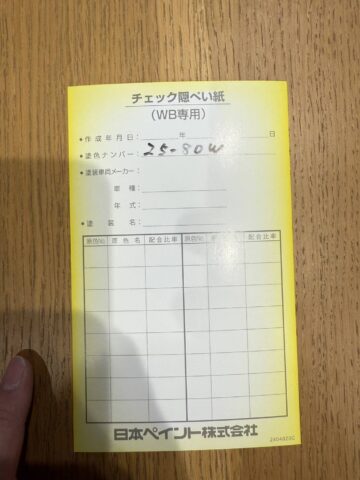 チェック隠ぺい紙
(WB専用)
•作成年月日: 年 日
•塗色ナンバー: 25-80W
•塗装車両メーカー:
車種:
年式:
•塗装名:
原色No 原色名 配合比率 原色No 原色名 配合比率
日本ペイント株式会社